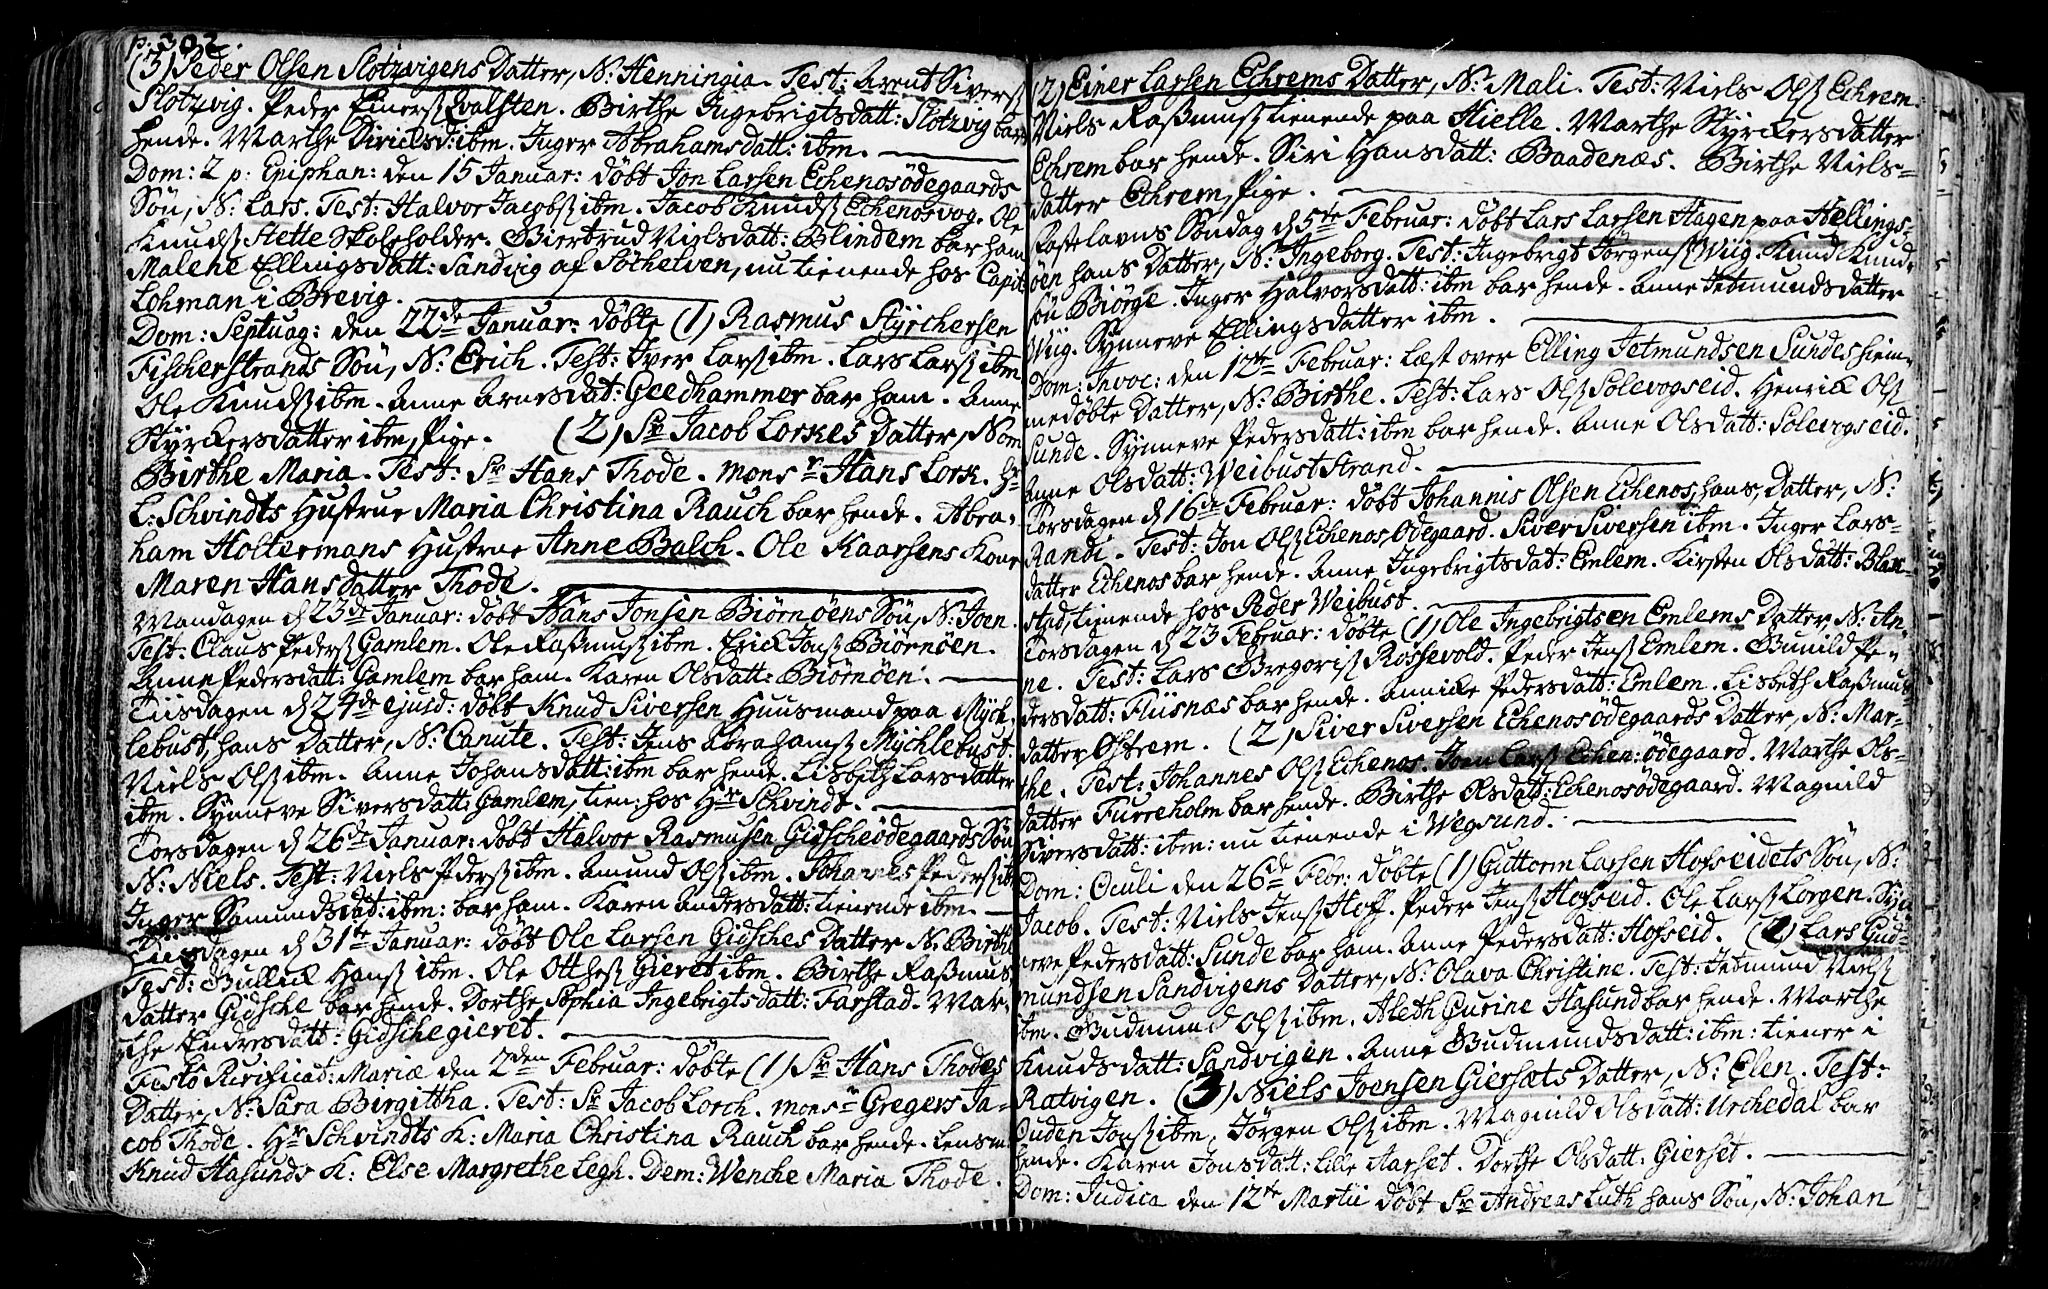 p. 302.
(3) Peder Olsen Slotzvigens Datter, N: Henningia. Test: Arent Siversß
Slotzvig. Peder Einersß Qvalsten. Birthe Ingebrigtsdatt: Slotzvig bar
hende. Marthe Dirichsd: ibm. Inger Abrahamsdatt: ibm.
Dom: 2 p: Epiphan: den 15 Januar: döbt Jon Larsen Echenosödegaards
Sön, N: Lars. Test: Halvor Jacobsß ibm. Jacob Knudsß Echenosvog. Ole
Knudsß Slette Skoleholder. Giertrud Nielsdatt: Blindem bar ham
Malene Ellingsdatt: Sandvig af Söchelven, nu tienende hos Capit
Lohman i Brevig.
Dom: Septuag: den 22de Januar: döbte (1) Rasmus Styrchersen
Fischerstrands Sön, N: Erich. Test: Iver Larsß ibm. Lars Larsß ibm
Ole Knudsß ibm. Anne Arnesdat: Geedhammer bar ham. Anne
Styrckersdatter ibm, Pige. (2) Sr Jacob Lorkes Datter, Nom
Birthe Maria. Test: Sr Hans Thode. Monsr Hans Lork. Hr
L: Schvindts Hustrue Maria Christina Rauch bar hende. Abra-
ham Holtermans Hustrue Anne Balch. Ole Kaarsens Kone
Maren Hansdatter Thode.
Mandagen d 23de Januar: döbt Hans Jonsen Biörnöens Sön, N: Joen.
Test: Claus Pedersß Gamlem. Ole Raßmusß ibm. Erick Jonsß Biörnöen.
Anne Pedersdatt: Gamlem bar ham. Karen Olsdatt: Biörnöen.
Tiisdagen d 24de ejusd: döbt Knud Siversen Huusmand paa Mych-
lebust, hans Datter, N: Canute. Test: Jens Abrahamsß Mychlebust
Niels Olsß ibm. Anne Johansdatt: ibm bar hende. Lisbeth Larsdatter
ibm. Synneve Siversdatt: Gamlem, tien: hos Hr Schvindt.
Torsdagen d 26de Januar: döbt Halvor Rasmusen Gidscheödegaards Sön
N: Niels. Test: Niels Pedersß ibm. Amund Olsß ibm. Johannes Pedersß ib
Inger Samundsdat: ibm: bar ham. Karen Andersdatt: tienende ibm.
Tiisdagen d 31te Januar: döbt Ole Larsen Gidsches Datter N: Birthe
Test: Gulleick Hansß ibm. Ole Otthesß Gieret ibm. Birthe Raßmus
datter Gidsche bar hende. Dorthe Sophia Ingebrigtsdatt: Farstad. Mar-
the Endresdatt: Gidschegieret.
Festo Purificat: Mariæ den 2den Februar: döbte (1) Sr Hans Thodes
Datter, N: Sara Birgittha. Test: Sr Jacob Lorch. Monsr Gregers Ja-
cob Thode. Hr Schvindts K: Maria Christina Rauch bar hende. Lensm.
Knud Hasunds K: Else Margrethe Legh. Dem: Wenche Maria Thode.
(2) Einer Larsen Echrems Datter, N: Mali. Test: Niels Olsß Echrem.
Niels Raßmusß tienende paa Hielle. Marthe Styrckersdatter
Echrem bar hende. Siri Hansdatt: Baadenæs. Birthe Niels-
datter Echrem, Pige.
Fastelavns Söndag d 5te Februar: döbt Lars Larsen Hagen paa Hellings-
öen hans Datter, N: Ingeborg. Test: Ingebrigt Jörgensß Wiig. Knud Knud-
sön Biörge. Inger Halvorsdatt: ibm bar hende. Anne Jetmundsdatter
Wiig. Synneve Ellingsdatter ibm.
Dom: Invoc: den 12te Februar: læst over Elling Jetmundsen Sundes hiem-
medöbte Datter, N: Birthe. Test: Lars Olsß Solevogseid. Henrick Olsß
Sunde. Synneve Pedersdatt: ibm bar hende. Anne Olsdatt: Solevogseid.
Anne Olsdatt: Weibust Strand.
Torsdagen d 16de Februar: döbt Johannis Olsen Echenos, hans, Datter, N:
Randi. Test: Jon Olsß Echenos Ödegaard. Siver Siversen ibm. Inger Lars-
datter Echenos bar hende. Anne Ingebrigtsdat: Emlem. Kirsten Olsdatt: Blak-
stad, tienende hos Peder Weibust.
Torsdagen d 23 Februar: döbte (1) Ole Ingebrigtsen Emlems Datter, N: An-
ne. Test: Lars Gregorisß Rossevold. Peder Jensß Emlem. Gunild Pe-
dersdatt: Fliisnæs bar hende. Annicke Pedersdatt: Emlem. Lisbeth Raßmus-
datter Östrem. (2) Siver Siversen Echenosödegaards Datter, N: Mar-
the. Test: Johannes Olsß Echenos. Joen Larsß Echen: ödegaard. Marthe Ols-
datter Furreholm bar hende. Birthe Olsdatt: Echenosödegaard. Magnild
Siversdatt: ibm: nu tienende i Wegsund.
Dom: Oculi den 26de Febr: döbte (1) Guttorm Larsen Hofseidets Sön, N:
Jacob. Test: Niels Jensß Hoff. Peder Jensß Hofseid. Ole Larsß Lorgen. Syn-
neve Pedersdatt: Sunde bar ham. Anne Pedersdatt: Hofseid. (2) Lars Gud-
mundsen Sandvigens Datter, N: Olava Christine. Test: Jetmund Nielsß
ibm. Gudmund Olsß ibm. Aleth Gurine Hasund bar hende. Marthe
Knudsdatt: Sandvigen. Anne Gudmundsdatt: ibm: tiener i
Ratvigen. (3) Niels Joensen Giersæts Datter, N: Elen. Test:
Ouden Jonsß ibm, Jörgen Olsß ibm. Magnild Olsdatt: Urchedal bar
hende. Karen Jonsdatt: Lille Aarset. Dorthe Olsdatt: Gierset.
Dom: Judica den 12te Martii döbt Sr Andreas Luth hans Sön, N: Johan